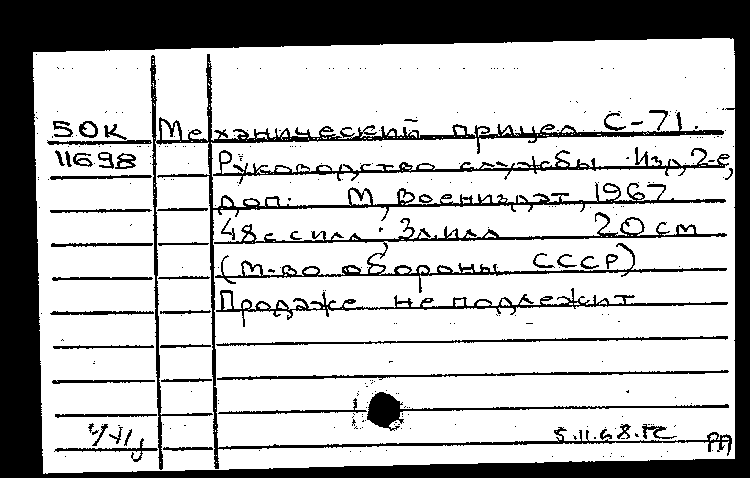 50К Механический прицел С-71.
11698 Руководство службы. Изд, 2-е,
доп. М, Воениздат, 1967.
48с с илл; 3л.илл 20 см
(М-во обороны СССР)
Продаже не подлежит
5.11.68.
РП